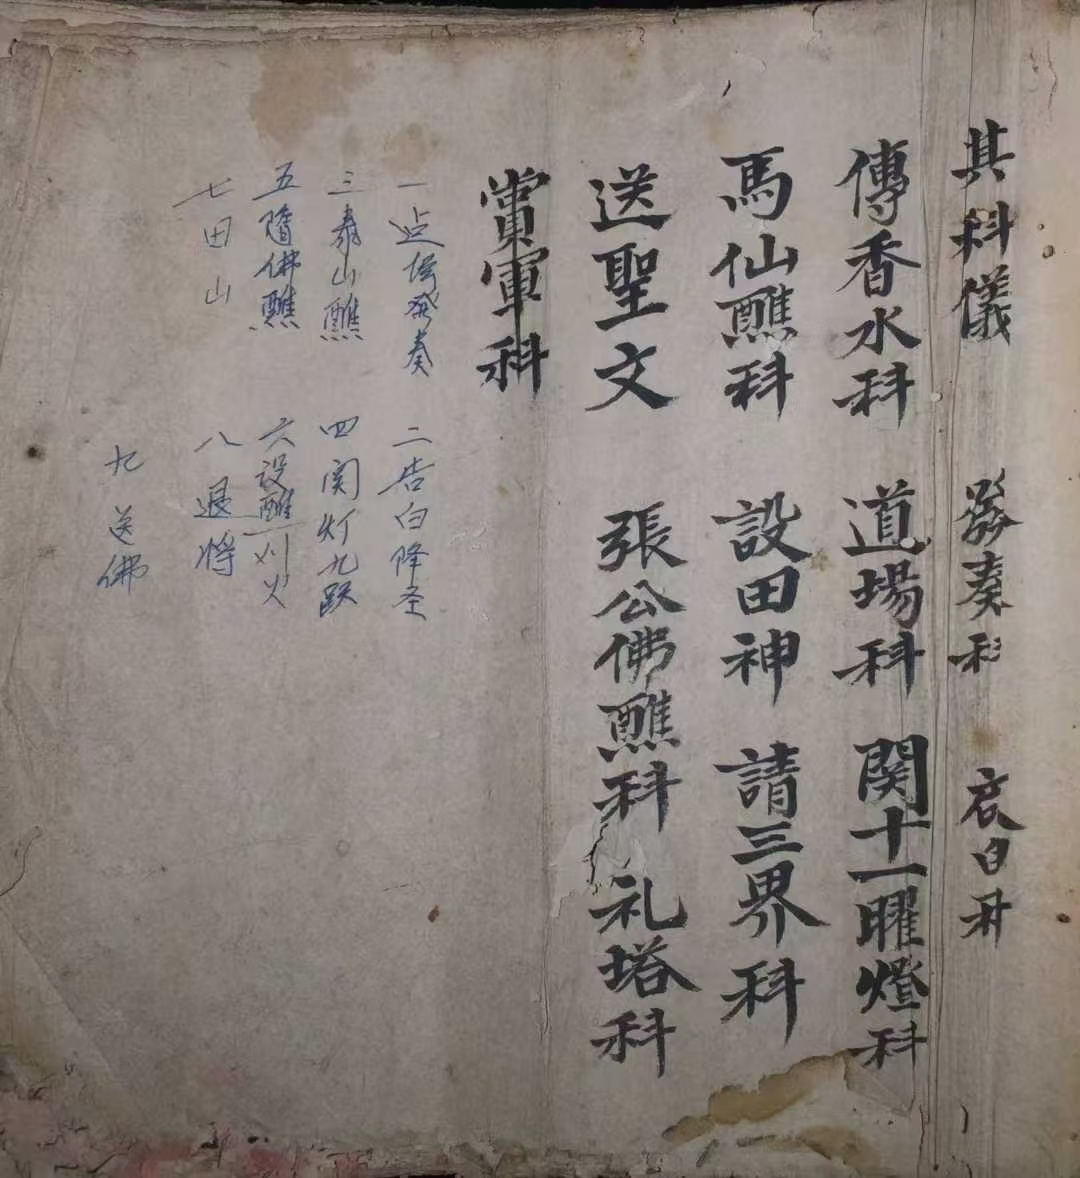 其科儀 發奏科 衣白科
傳香水科 道場科 関十一曜燈科
馬仙醮科 設田神 請三界科
送聖文 張公佛醮科 礼塔科
賞軍科
一 发奏 二告白降圣
三 泰山醮 四 関灯九
五 佛醮 六 设醮 刈火
七 田山 八 退将
九 送佛